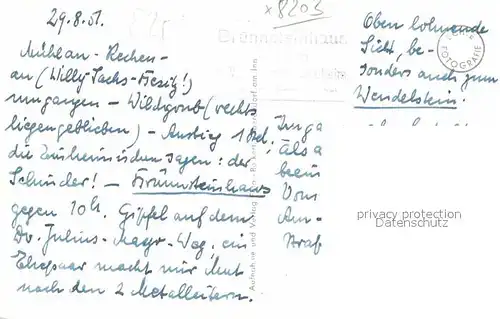 29.8.51.
Mühlau - Rechen-
au (Willy Sachs-Besitz!)
umgangen - Wildgrub (rechts
liegengeblieben) - Anstieg 1 Std.,
die Einheimischen sagen: der
Schinder! - Brünnsteinhaus
gegen 10h. Gipfel auf dem
Dr. Julius-Mayr-Weg, ein
Ehepaar macht mir Mut
nach den 2 Metalleitern.
x8203
Brünnsteinhaus
Aufnahme und Verlag
Im ga
Als a
beein
Vom
Am-
Straß
Oben lohnende
Sicht, be-
sonders auch zum
Wendelstein!
FOTOGRAFIE
privacy protection
Datenschutz